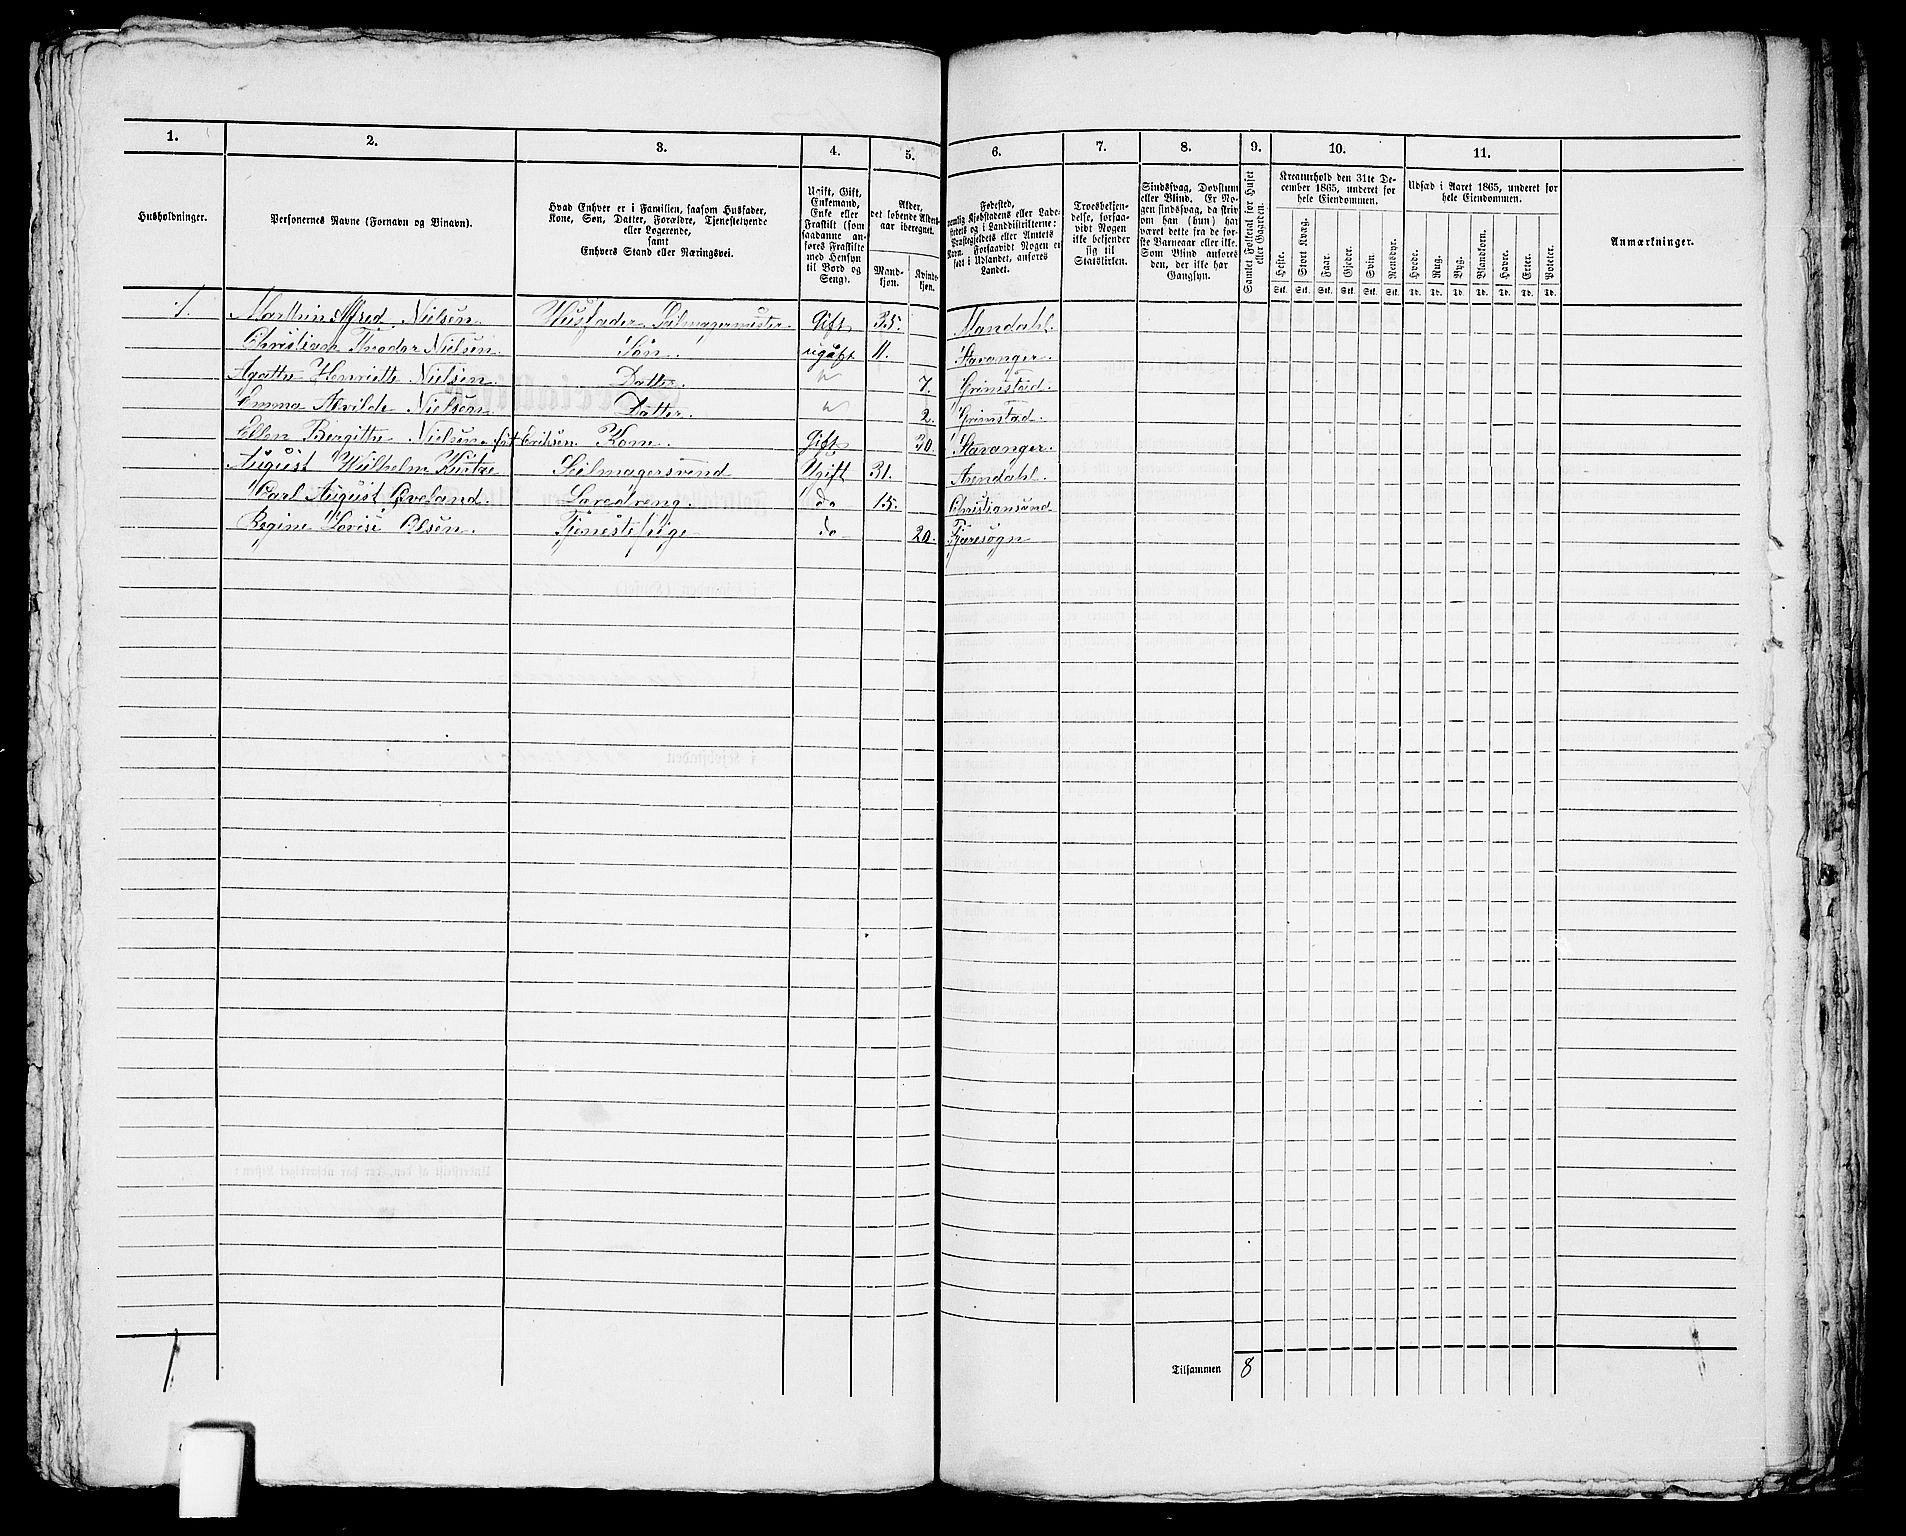 1. 2. 3. 4. 5. 6. 7. 8. 9. 10. 11.
Husholdninger.
Personernes Navne (Fornavn og Tilnavn).
Hvad Enhver er i Familien, saasom Husfader,
Kone, Søn, Datter, Forældre, Tjenestetyende
eller Logerende,
samt
Enhvers Stand eller Næringsvei.
Ugift, Gift,
Enkemand,
Enke eller
Fraskilt (som
saadanne an-
føres Fraskilte
med Hensyn
til Bord og
Seng).
Alder,
det løbende Alders-
aar iberegnet.
Mand-
kjøn.
Kvinde-
kjøn.
Fødested,
nemlig Kjøbstadens eller Lade-
stedets og i Landdistrikterne:
Præstegjeldets eller Amtets
Navn. Forsaavidt Nogen er
født i Udlandet, anføres
Landet.
Troesbekjen-
delse, forsaa-
vidt Nogen
ikke bekjender
sig til
Statskirken.
Sindssvag, Døvstum
eller Blind. Er No-
gen sindssvag, da skriv
om han (hun) har
været dette fra de før-
ste Barneaar eller ikke.
Som Blind anføres
den, der ikke har
Gangsyn.
Samlet Folketal for Huset
eller Gaarden.
Kreaturhold den 31te De-
cember 1865, underet for
hele Eiendommen.
Heste. Stort Kvæg. Faar. Gjeder. Svin. Rensdyr.
Stk. Stk. Stk. Stk. Stk. Stk.
Udsæd i Aaret 1865, underet for
hele Eiendommen.
Hvede. Rug. Byg. Blandkorn. Havre. Erter. Poteter.
Td. Td. Td. Td. Td. Td. Td.
Anmærkninger.
1. Marthin Alfred Nielsen Husfader Seilmagermester Gift 35. Mandahl.
Christian Theodor Nielsen Søn. ugift 11. Stavanger.
Agathe Henriette Nielsen Datter. " 7. Grimstad.
Emma Alvilde Nielsen Datter " 2. Grimstad.
Ellen Bergitte Nielsen født Eriksen. Kone. Gift 30. Stavanger.
August Wilhelm Seilmagersvend Ugift 31. Arendahl.
Carl August Qveland. Læredreng. do 15. Christiansund
Regine Lovise Olsen. Tjenestepige do 20. Fjæresogn
1
Tilsammen 8